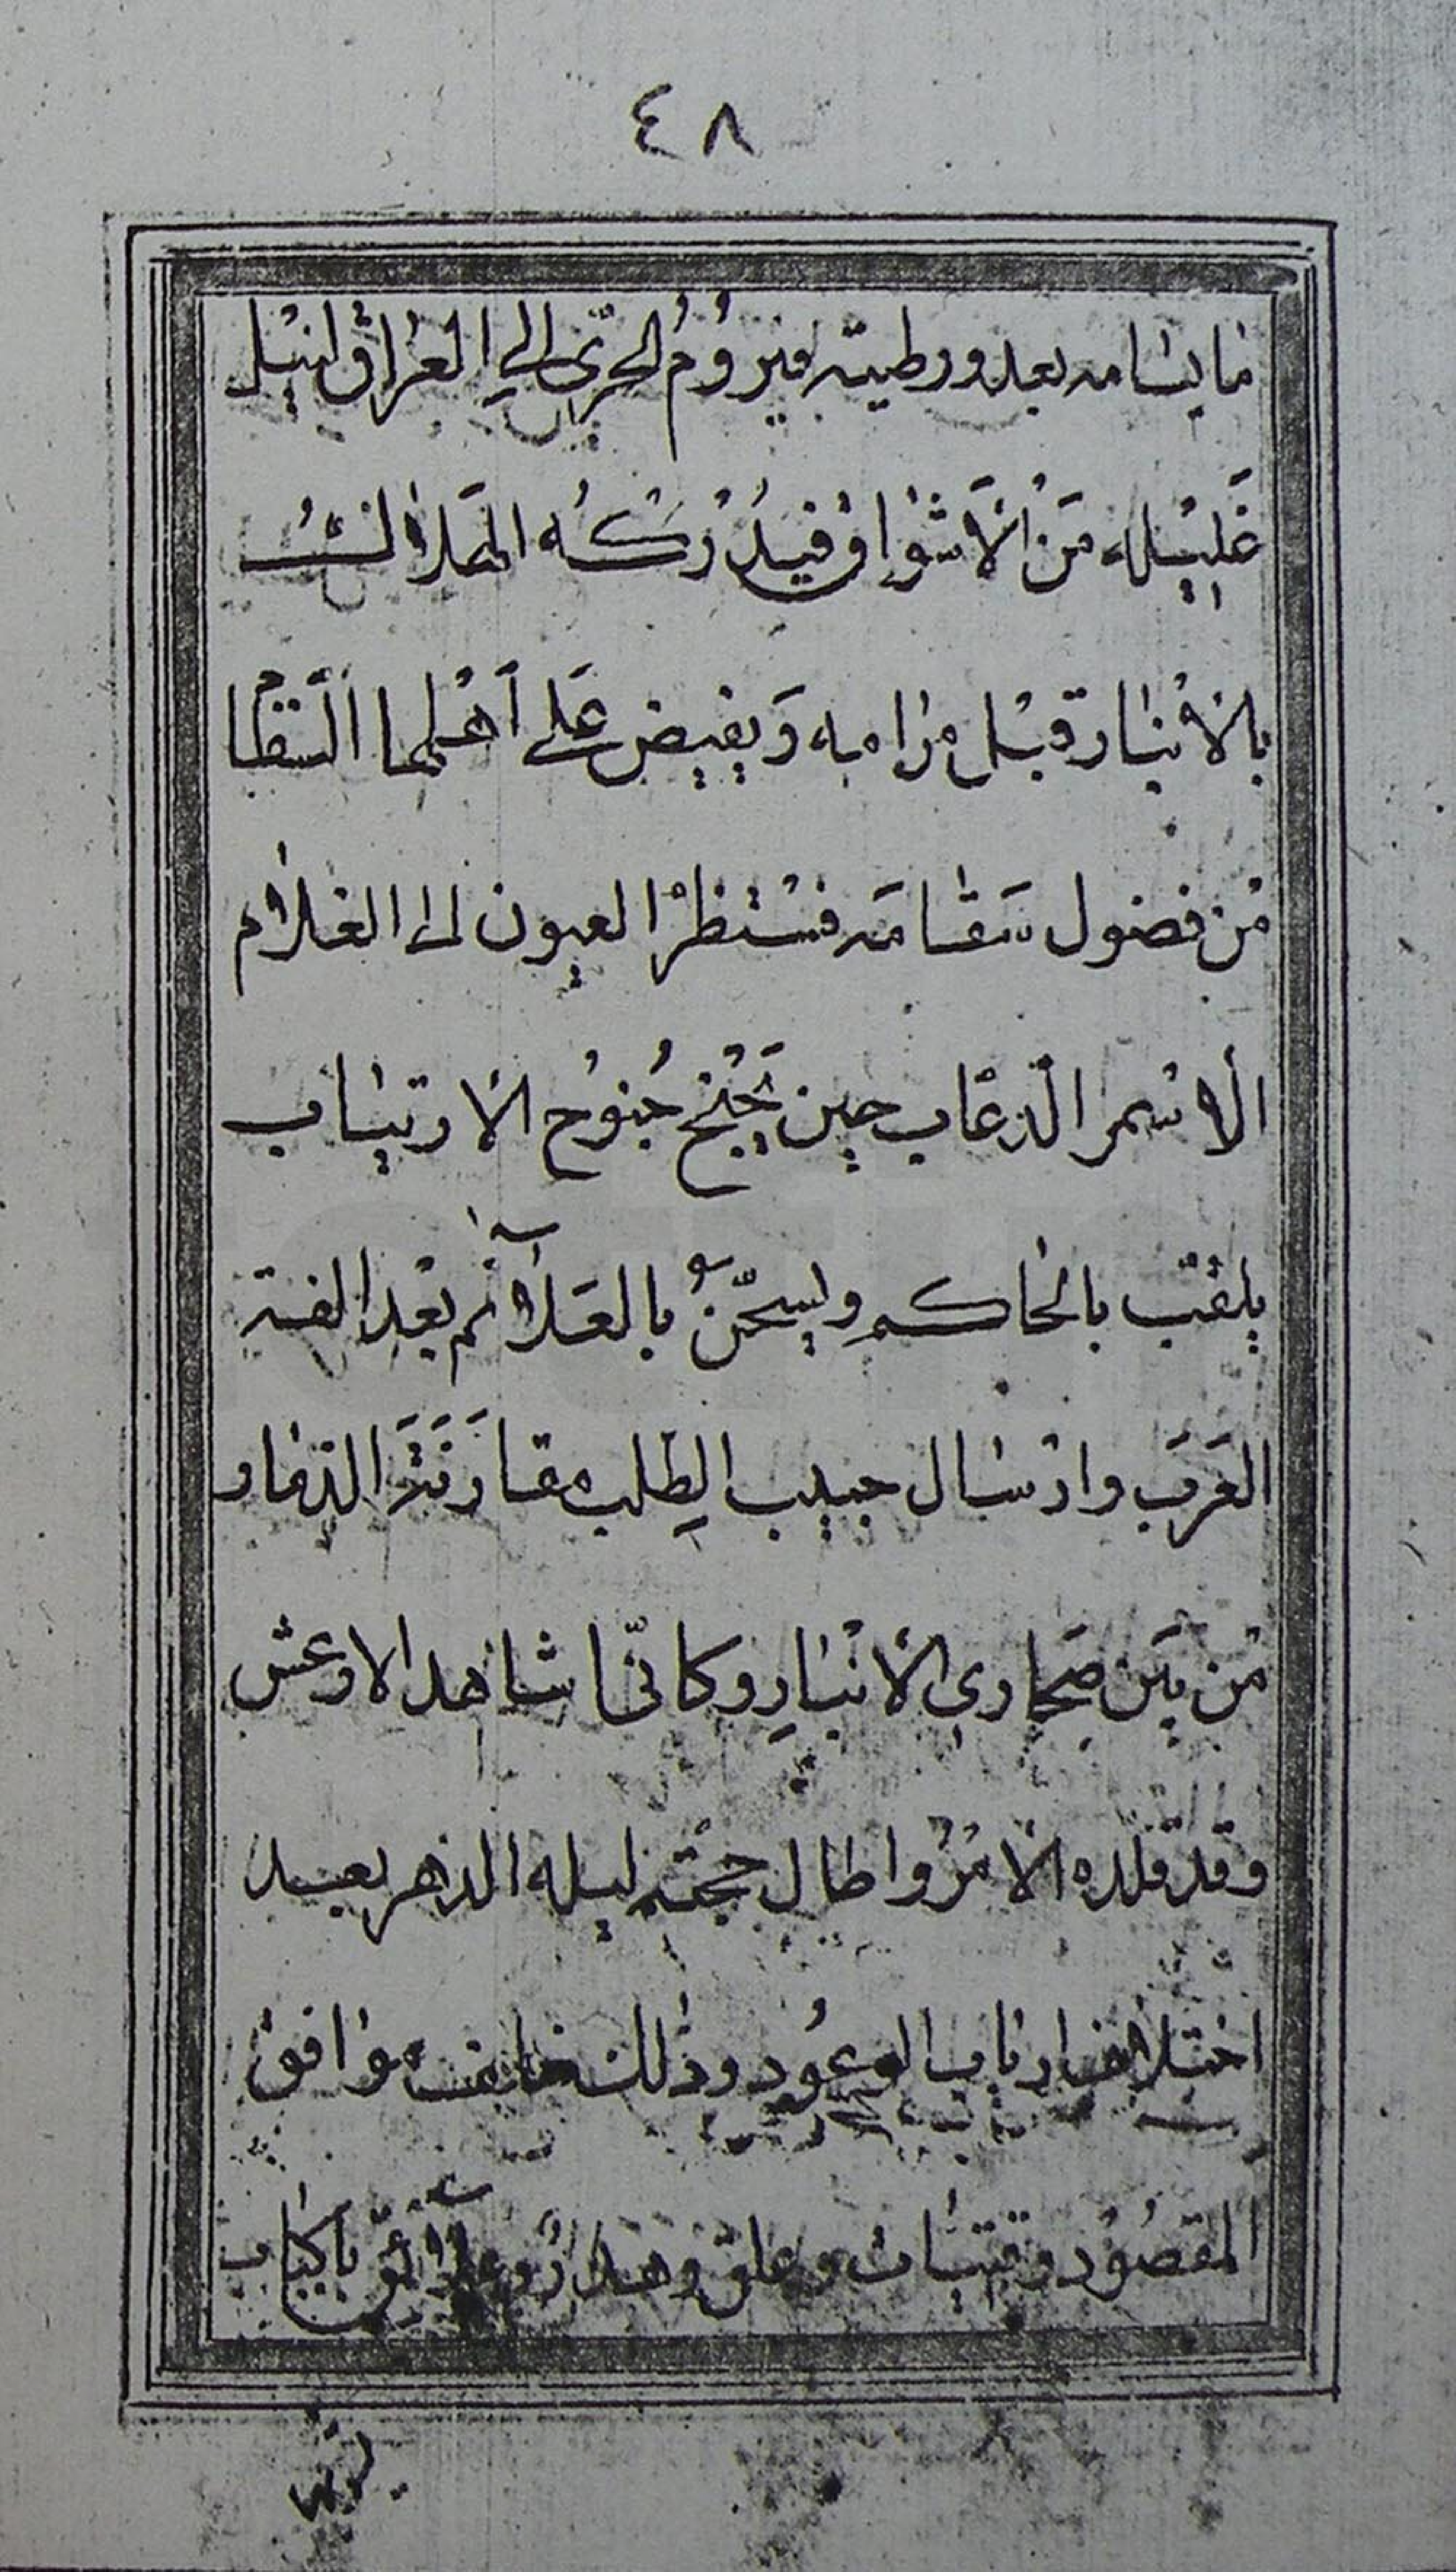 ٤٨
ما يشامه بعد ورطيته فيروم الجري الي العراق لنيل
غليله من الاشواق فيدركه المهالك
بالانبار قبل مرامه ويفيض على أهلها السقما
من فضول سقامه فستنظر العيون الى الغلام
الاسمر الدعاب حين يجنح جنوح الارتياب
يلقب بالحاكم ويسجن بالعلائم بعد الفة
العرب وارسال حبيب لطلب مقارنة الدمار
من بين صحاري الانبار وكانّي اشاهد الاوعش
وقد قلده الامر واطال حجته ليله الدهر بعيد
اختلاف ارباب الوعود وذلك خايف موافق
المقصود وقتبات وعلق